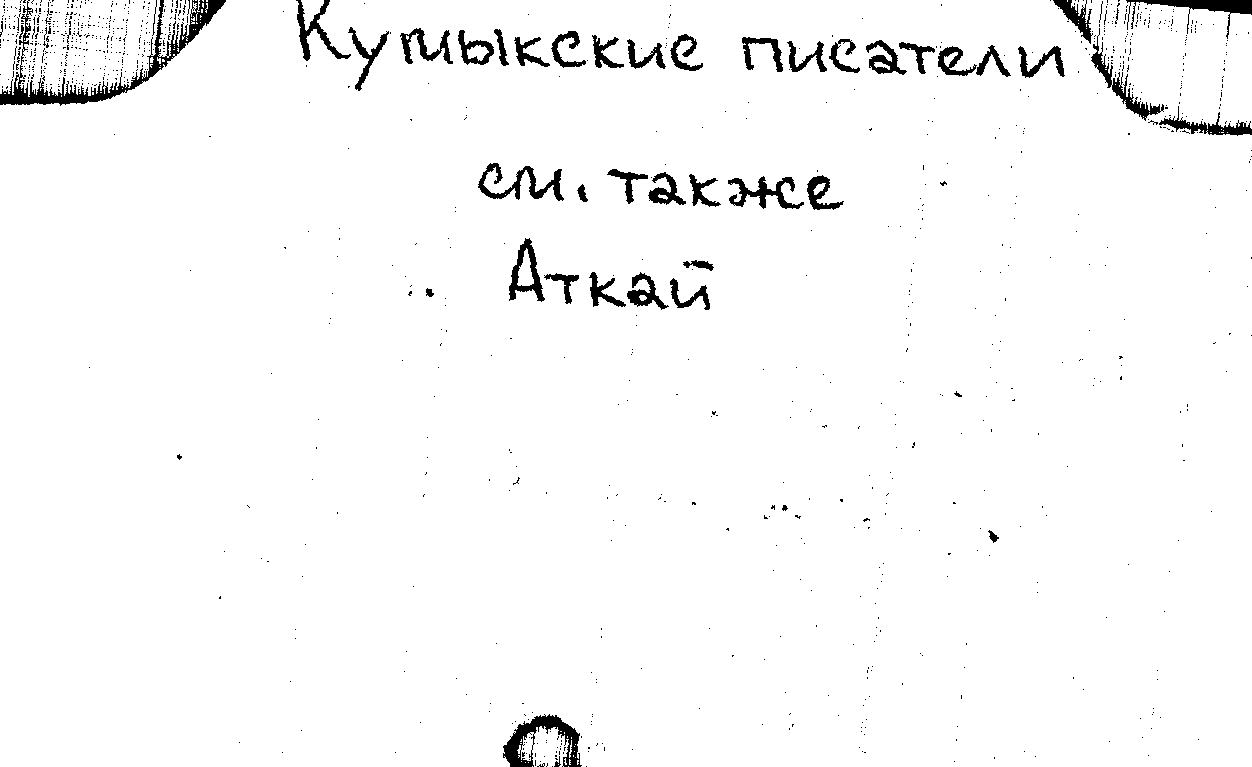 Кумыкские писатели
см. также
Аткай